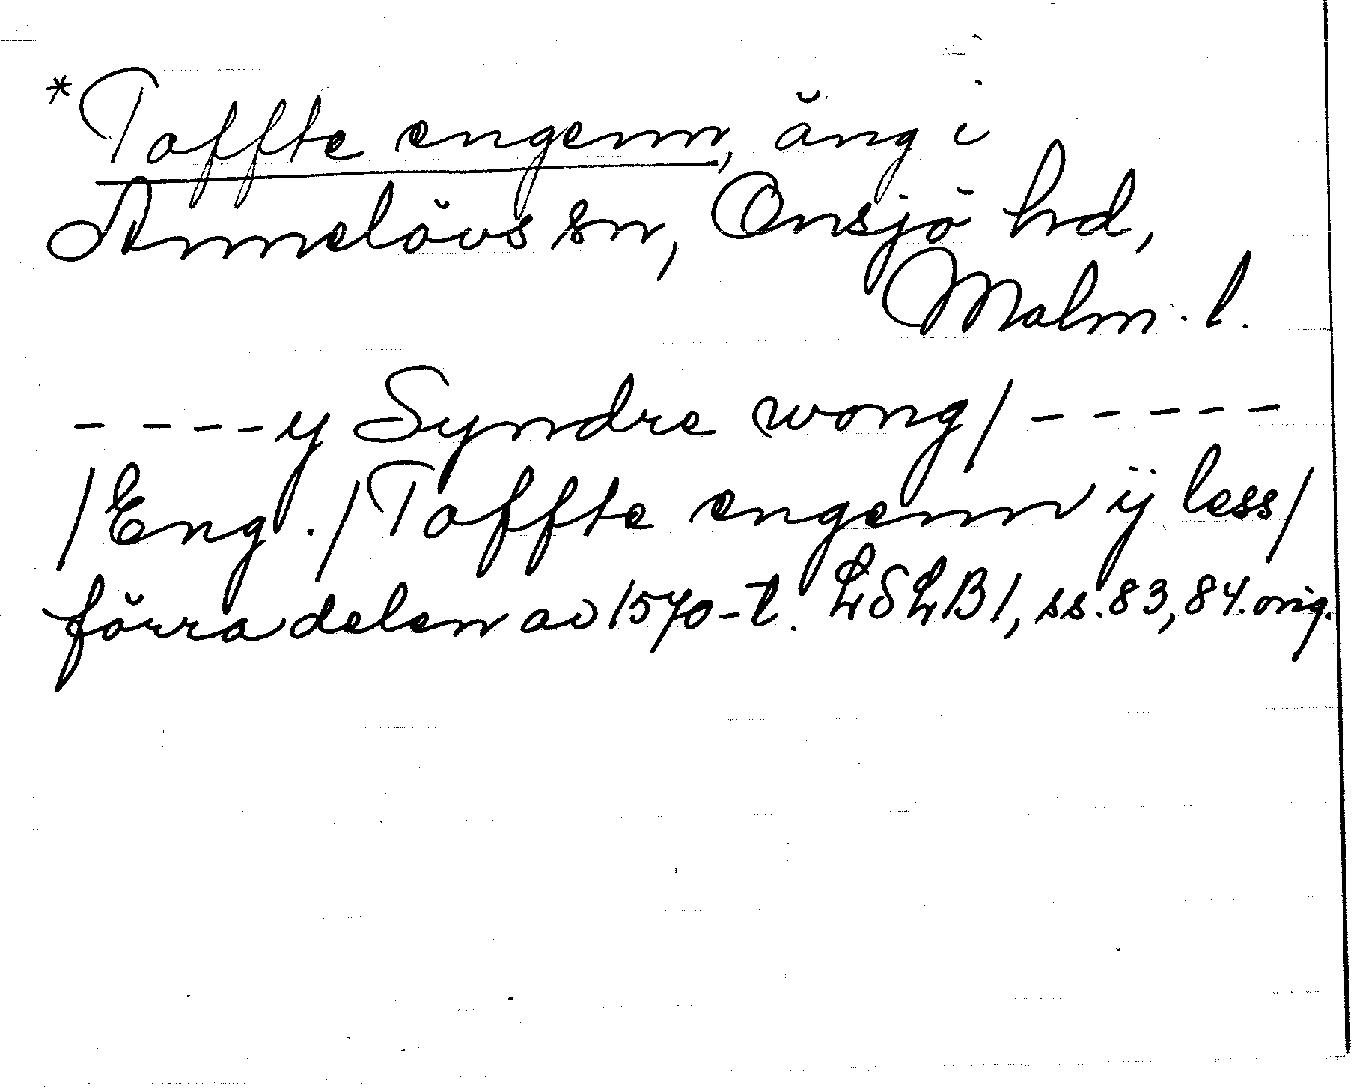 *Toffte engenn, äng i
Annelövs sn, Onsjö hd,
Malm. l.
- - - - y Syndre wong/ - - - - -
/Eng./Toffte engenn ij less/
förra delen av 1570-t. LSLB1, ss.83,84.orig.